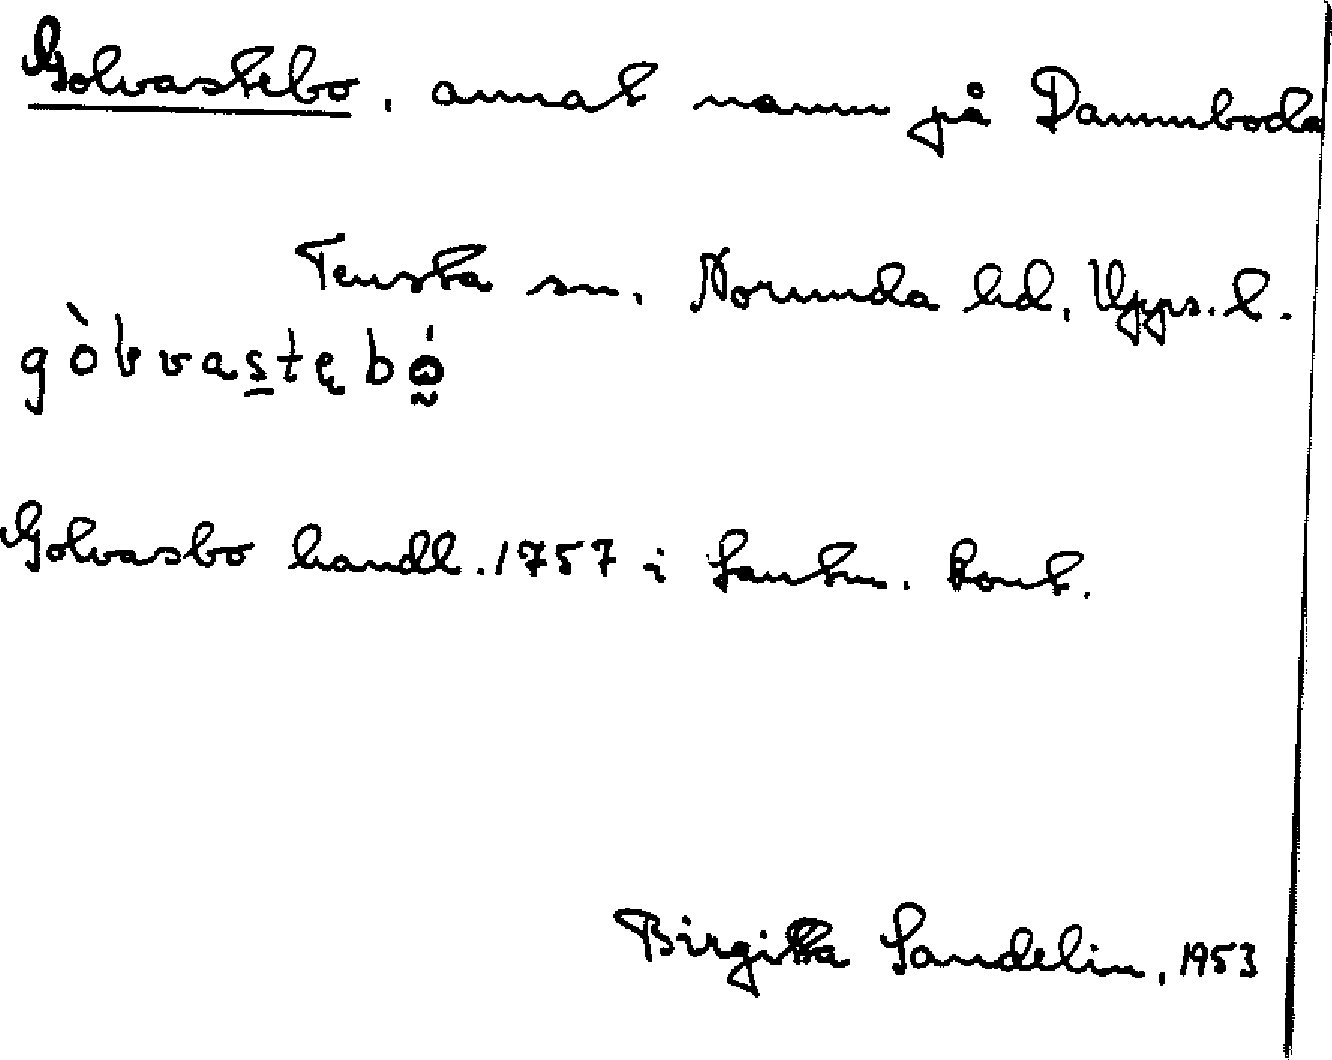 Golvastebo, annat namn på Dammboda
Tensta sn. Norunda hd, Upps. l.
gòlvastębó
Golvasbo handl. 1757 i Lantm. kont.
Birgitta Sandelin, 1953